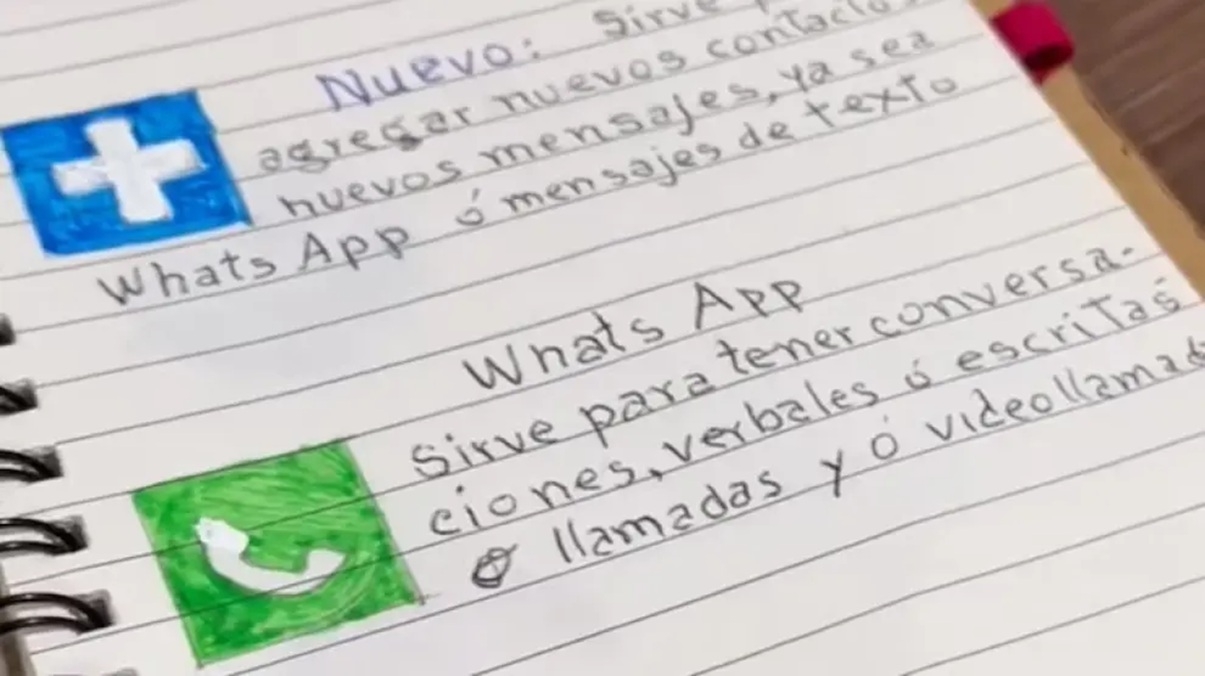 Nuevo: Sirve
agregar nuevos contacto
nuevos mensajes, ya sea
Whats App ó mensajes de texto
Whats App
Sirve para tener conversa-
ciones, verbales ó escritas
ó llamadas y ó videollamad